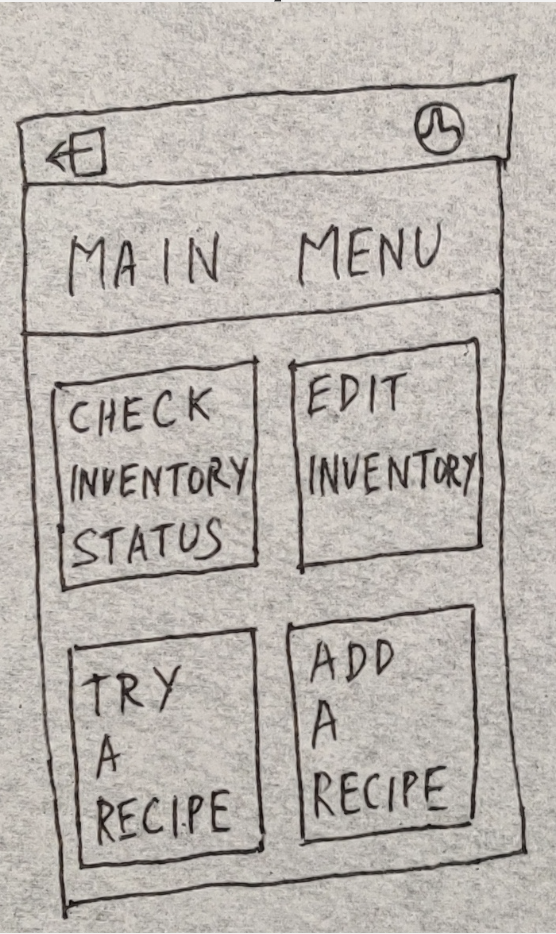 MAIN MENU
CHECK
INVENTORY
STATUS
EDIT
INVENTORY
TRY
A
RECIPE
ADD
A
RECIPE